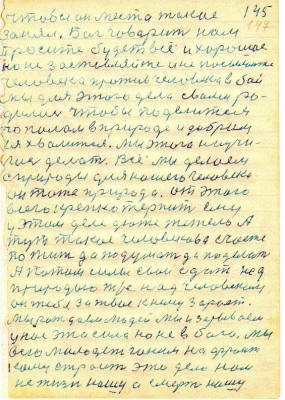 чтобы он места такое 145
занял. Бог говорит нам 147
просите будет всё и хорошое
но не заставляйте и не посылайте
человека против человека в бой
мы для этого дела с вами ро-
дились чтобы подвигом
по полам в природе и добром
хвалится. мы этого и лучи-
делат. Всё мы делаем
с природы для нашего человека
он тоже природа. от этого
всего крепко терпит ему
у этом деле дюже тяжело А
тут такое человекова счастье
по тихида подумат да подышат
А потом силы свои сдат над
природою тоже над человеком
он тебя за твае книгу зароет.
мы рождаем людей мы и зарываем
у нас эта сила но не в бога. мы
всю молодеж гоним на фронт
кому строст это дело нам
не жизн нашу а смерт нашу